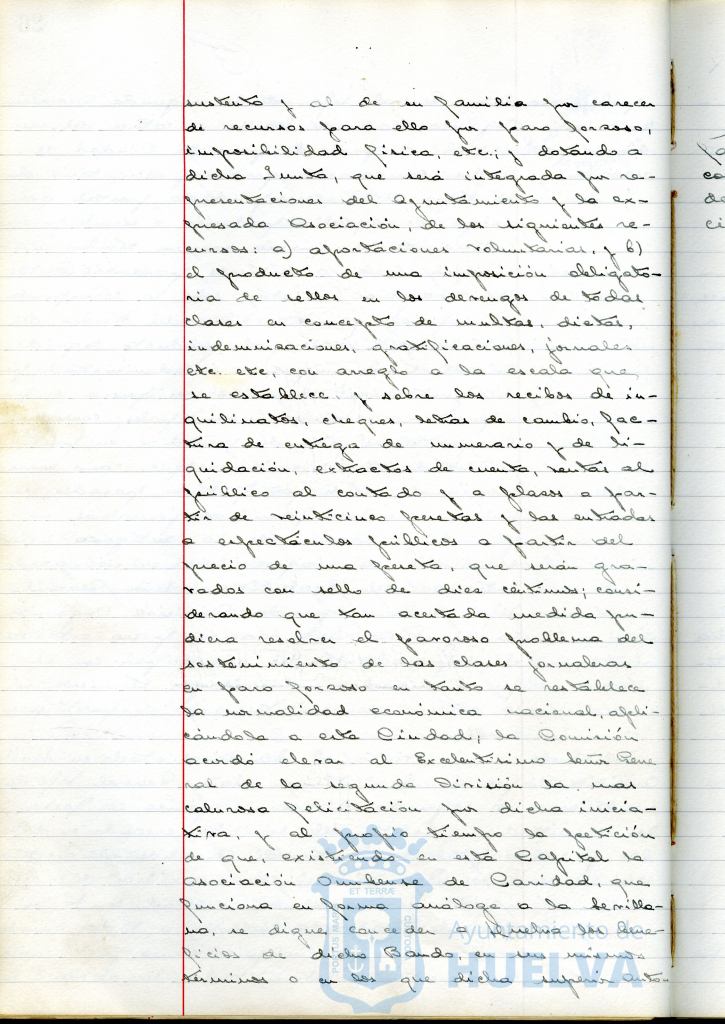 sustento y al de su familia por carecer
de recursos para ello por paro forzoso,
imposibilidad física, etc.; y dotando a
dicha Junta, que será integrada por re-
presentaciones del Ayuntamiento y la ex-
presada Asociación, de los siguientes re-
cursos: a) aportaciones voluntarias, y b)
el producto de una imposición obligato-
ria de sellos en los devengos de todas
clases en concepto de multas, dietas,
indemnizaciones, gratificaciones, jornales
etc. etc, con arreglo a la escala que
se establece, y sobre los recibos de in-
quilinatos, cheques, letras de cambio, fac-
tura de entrega de numerario y de li-
quidación, extractos de cuenta, ventas al
público al contado y a plazos a par-
tir de veinticinco pesetas y las entradas
a espectáculos públicos a partir del
precio de una peseta, que serán gra-
vados con sello de diez céntimos; consi-
derando que tan acertada medida pu-
diera resolver el pavoroso problema del
sostenimiento de las clases jornaleras
en paro forzoso en tanto se restablece
la normalidad económica nacional, apli-
cándola a esta Ciudad; la Comisión
acordó elevar al Excelentísimo Señor Gene
ral de la segunda División la mas
calurosa felicitación por dicha inicia-
tiva, y al propio tiempo la petición
de que, existiendo en esta Capital la
Asociación Onubense de Caridad, que
funciona en forma análoga a la Sevilla-
na, se digne conceder a Huelva los bene-
ficios de dicho Bando, en sus mismos
términos o en los que dicha superior auto-
ET TERRÆ
PORTUS MARIS
CUSTODIA
Ayuntamiento de
HUELVA
co
de
ci